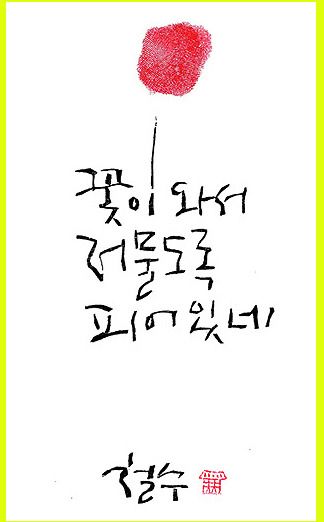 꽃이 와서
저물도록
피어 있네
철수